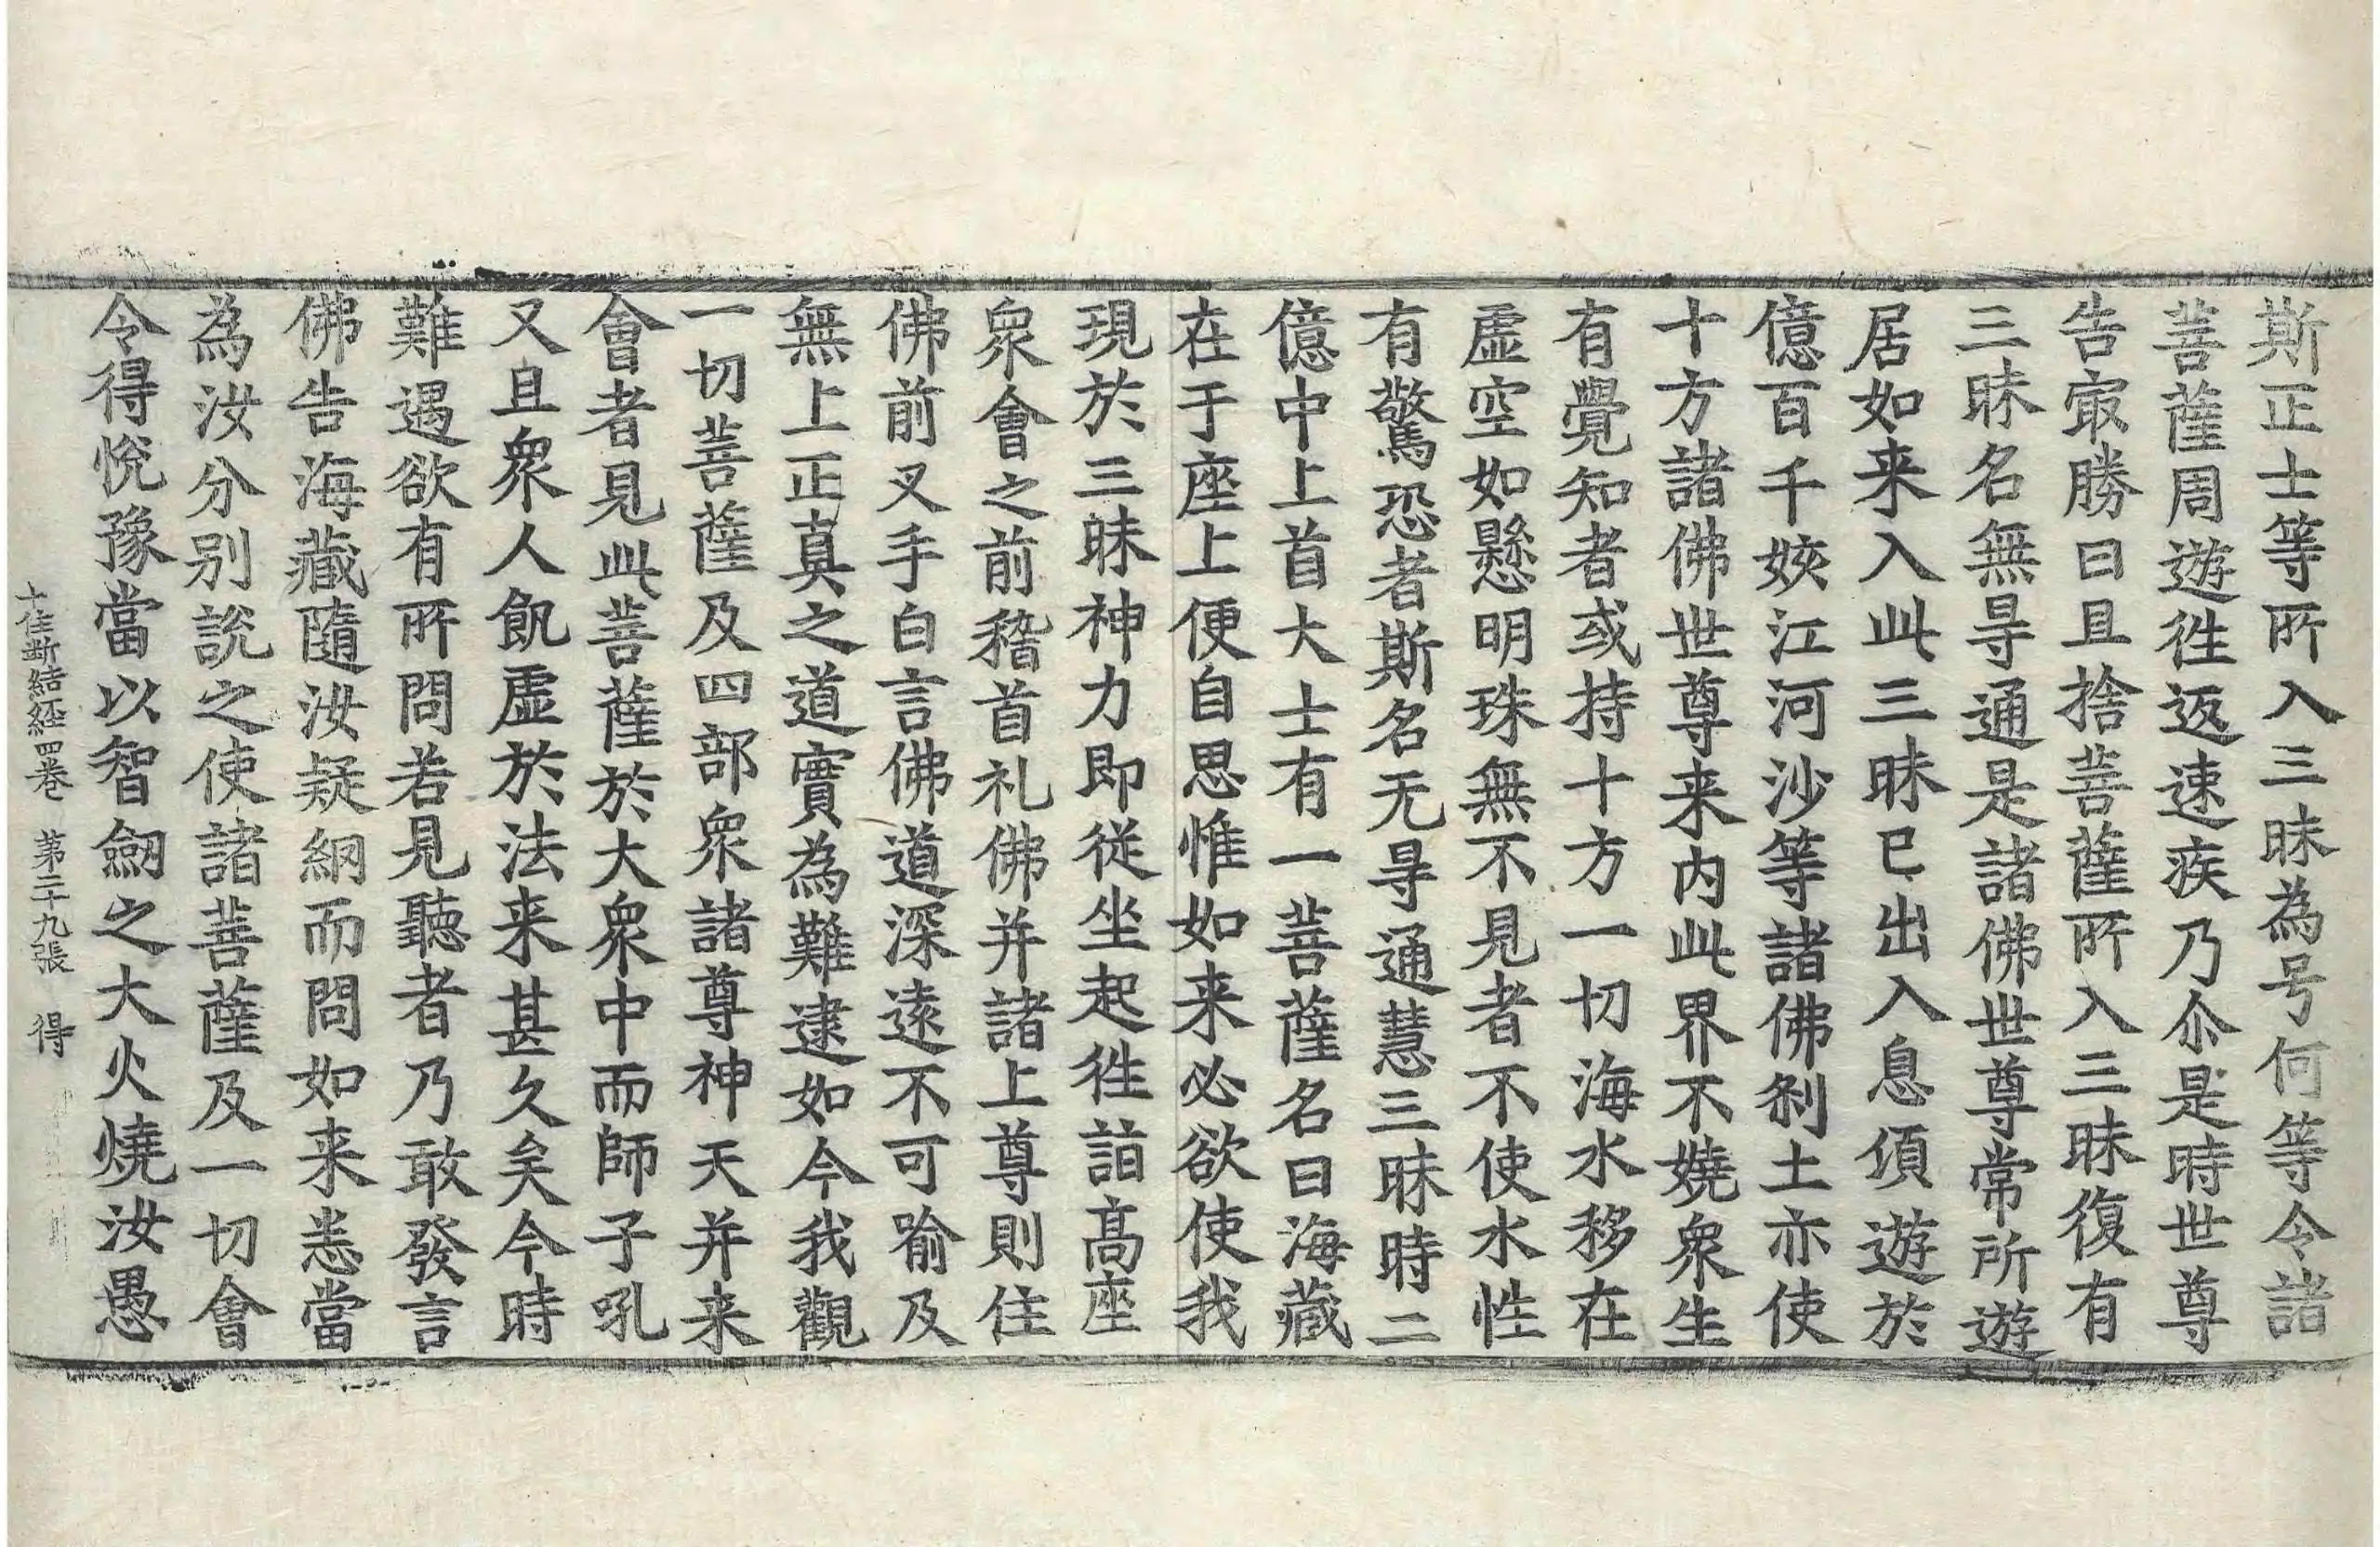 斯正士等所入三昧為号何等令諸
菩薩周遊徃返速疾乃尒是時世尊
告㝡勝曰且捨菩薩所入三昧復有
三昧名無㝵通是諸佛世尊常所遊
居如来入此三昧已出入息湏遊於
億百千姟江河沙等諸佛刹土亦使
十方諸佛世尊来內此界不嬈衆生
有覺知者或持十方一切海水移在
虛空如懸明珠無不見者不使水性
有驚恐者斯名无㝵通慧三昧時二
億中上首大士有一菩薩名曰海藏
在于座上便自思惟如来必欲使我
現於三昧神力即從坐起徃詣高座
衆會之前稽首礼佛并諸上尊則住
佛前叉手白言佛道深遠不可喻及
無上正真之道實為難逮如今我觀
一切菩薩及四部衆諸尊神天并来
會者見此菩薩於大衆中而師子吼
又且衆人飢虛於法来甚久矣今時
難遇欲有所問若見聽者乃敢發言
佛告海藏隨汝疑網而問如来悉當
為汝分別說之使諸菩薩及一切會
令得悅豫當以智劒之大火燒汝愚
十住斷結經四卷　第二十九張　得